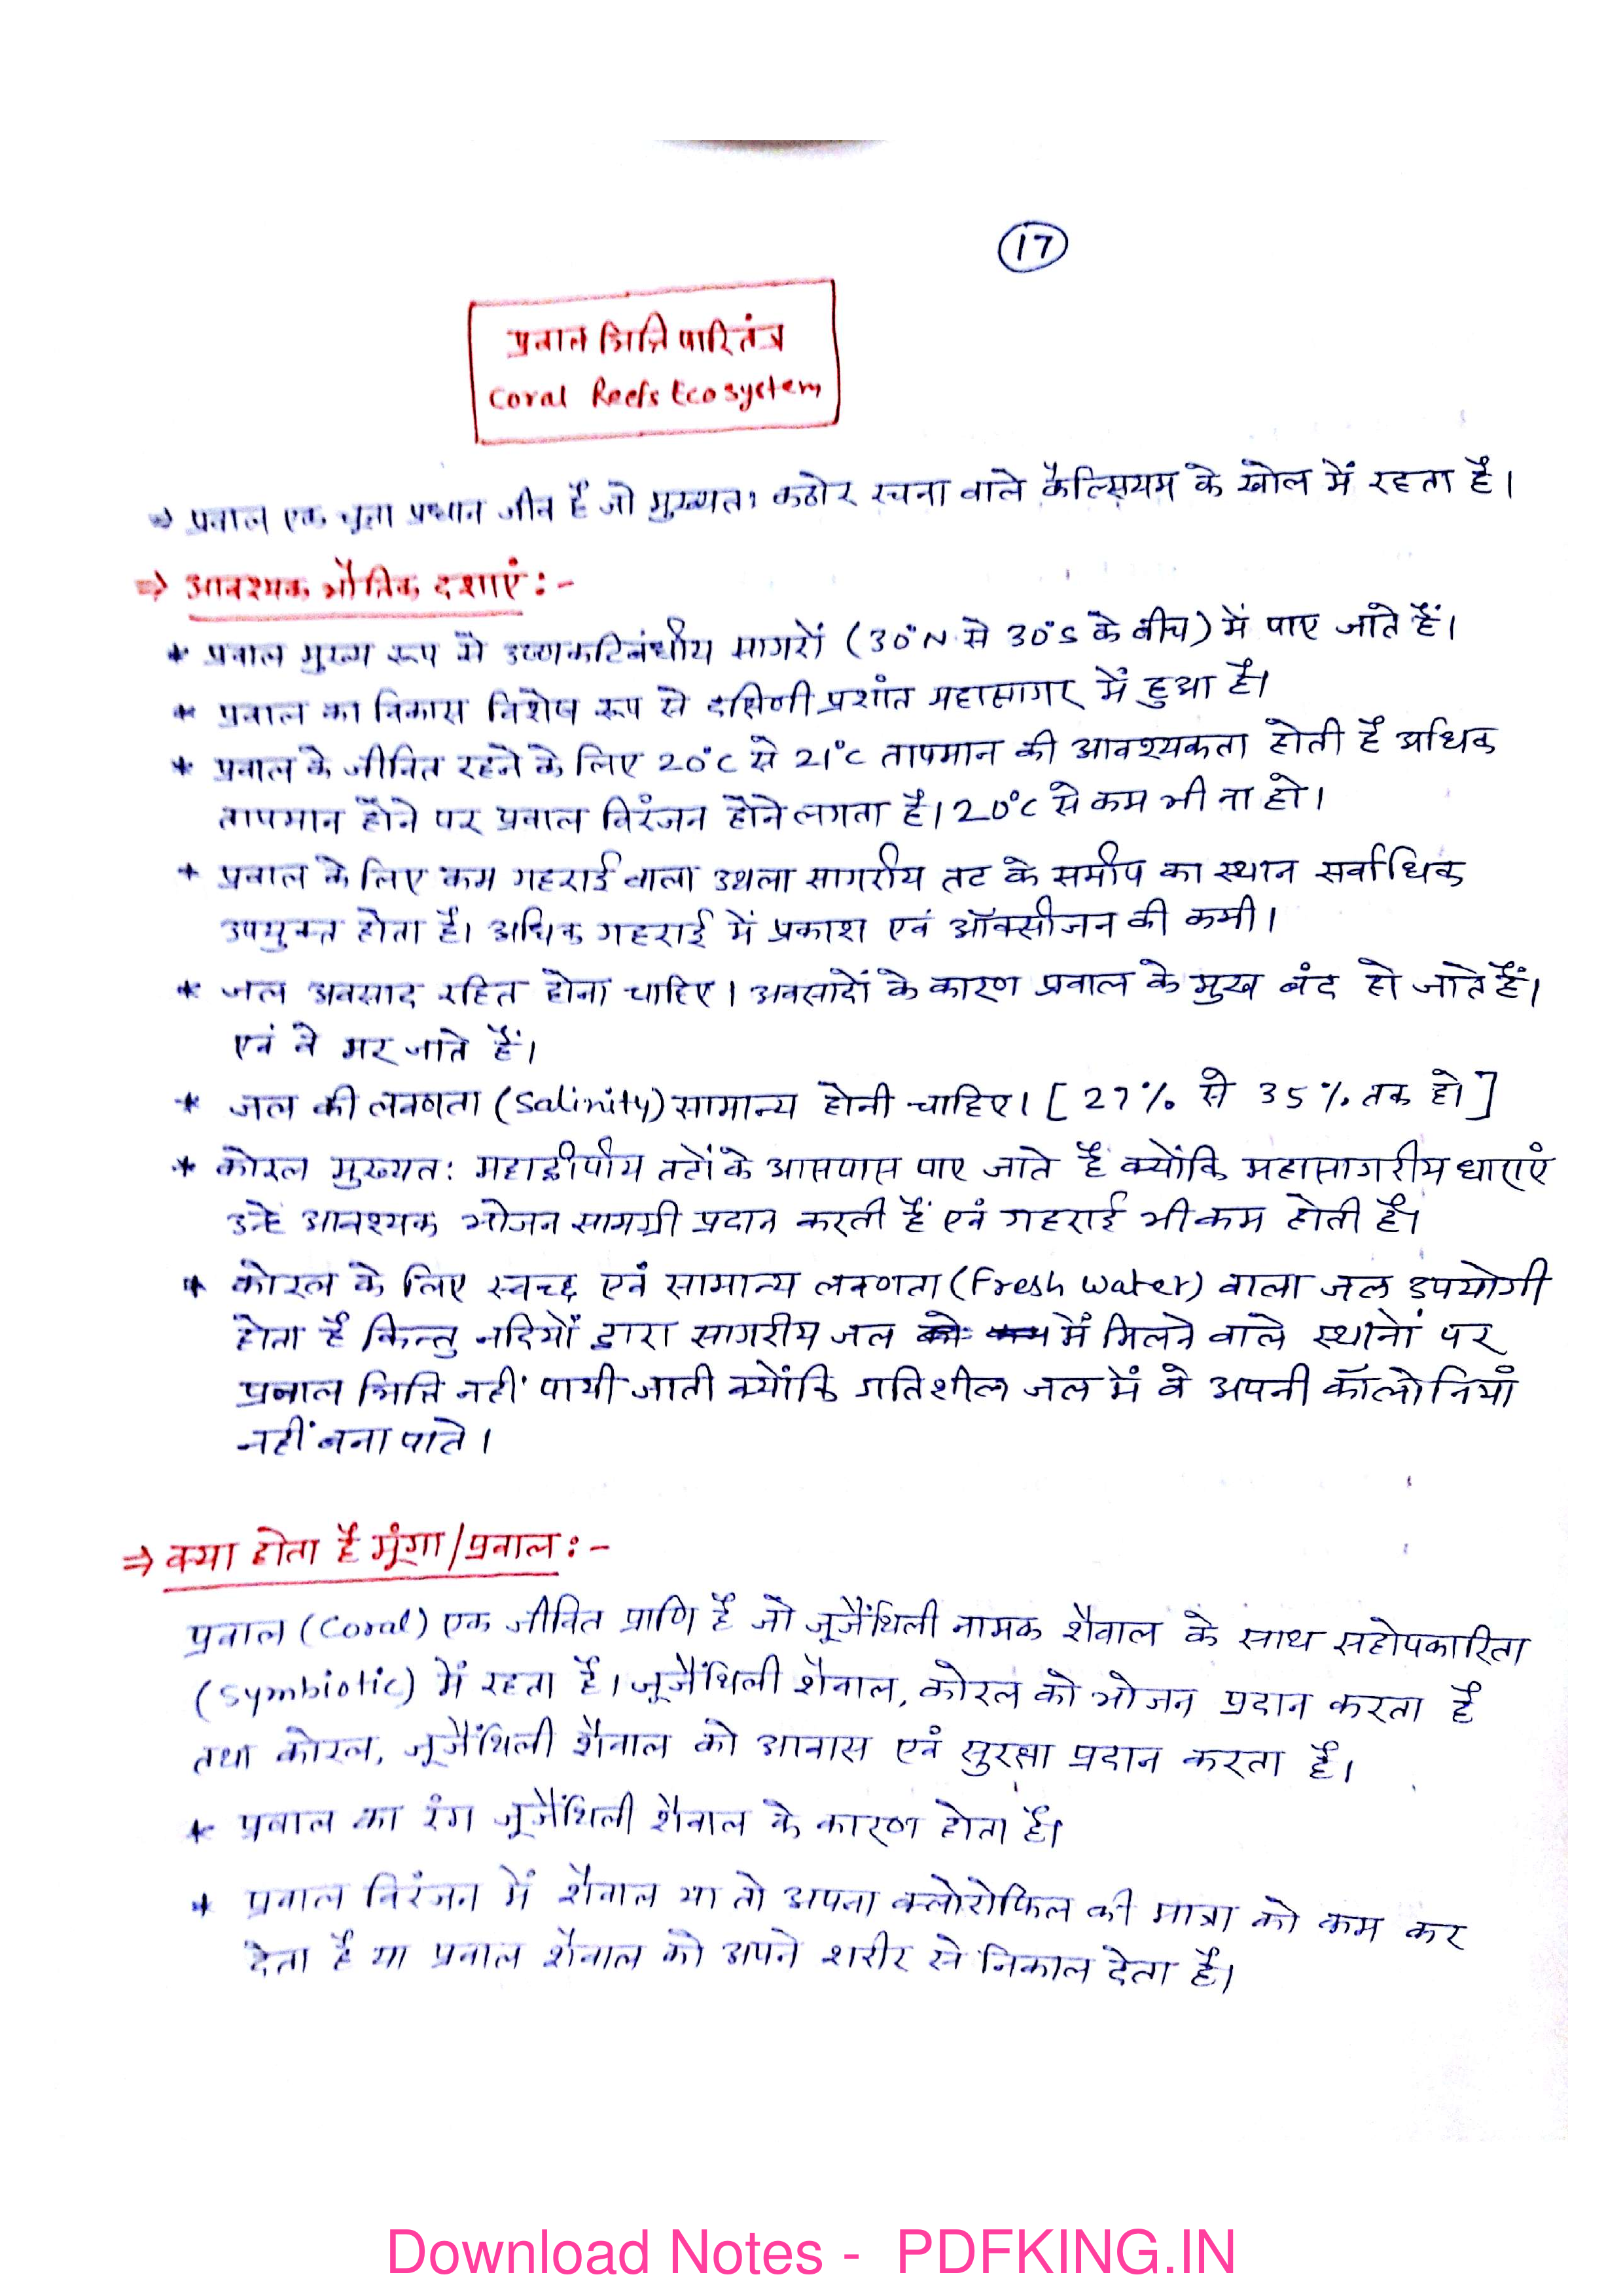 17
प्रवाल भित्ति पारितंत्र
Coral Reefs Ecosystem
⇒ प्रवाल एक चूना प्रधान जीव है जो मुख्यतः कठोर रचना वाले कैल्सियम के खोल में रहता है।
⇒ आवश्यक भौतिक दशाएं :-
* प्रवाल मुख्य रूप से उष्णकटिबंधीय सागरों (30°N से 30°S के बीच) में पाए जाते हैं।
* प्रवाल का विकास विशेष रूप से दक्षिणी प्रशांत महासागर में हुआ है।
* प्रवाल के जीवित रहने के लिए 20°C से 21°C तापमान की आवश्यकता होती है अधिक
तापमान होने पर प्रवाल विरंजन होने लगता है। 20°C से कम भी ना हो।
* प्रवाल के लिए कम गहराई वाला उथला सागरीय तट के समीप का स्थान सर्वाधिक
उपयुक्त होता है। अधिक गहराई में प्रकाश एवं ऑक्सीजन की कमी।
* जल अवसाद रहित होना चाहिए। अवसादों के कारण प्रवाल के मुख बंद हो जाते हैं।
एवं वे मर जाते हैं।
* जल की लवणता (Salinity) सामान्य होनी चाहिए। [27% से 35% तक हो]
* कोरल मुख्यत: महाद्वीपीय तटों के आसपास पाए जाते हैं क्योंकि महासागरीय धाराएं
उन्हे आवश्यक भोजन सामग्री प्रदान करती हैं एवं गहराई भी कम होती है।
* कोरल के लिए स्वच्छ एवं सामान्य लवणता (Fresh water) वाला जल उपयोगी
होता है किन्तु नदियों द्वारा सागरीय जल में मिलने वाले स्थानों पर
प्रवाल भित्ति नहीं पायी जाती क्योंकि गतिशील जल में वे अपनी कॉलोनियाँ
नहीं बना पाते।
⇒ क्या होता है मूंगा/प्रवाल :-
प्रवाल (Coral) एक जीवित प्राणि है जो जूजैंथिली नामक शैवाल के साथ सहोपकारिता
(Symbiotic) में रहता है। जूजैंथिली शैवाल, कोरल को भोजन प्रदान करता है
तथा कोरल, जूजैंथिली शैवाल को आवास एवं सुरक्षा प्रदान करता है।
* प्रवाल का रंग जूजैंथिली शैवाल के कारण होता है।
* प्रवाल विरंजन में शैवाल या तो अपना क्लोरोफिल की मात्रा को कम कर
देता है या प्रवाल शैवाल को अपने शरीर से निकाल देता है।
Download Notes - PDFKING.IN